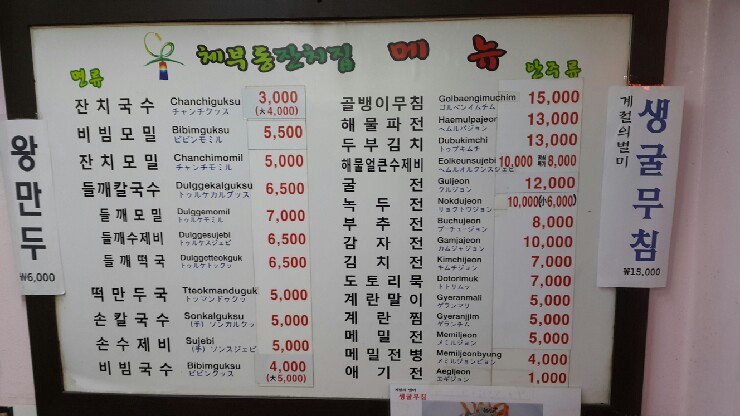 체부동잔치집 메뉴
면류
잔치국수 Chanchiguksu 3,000
チャンチグッス (大4,000)
비빔모밀 Bibimguksu 5,500
ビビンモミル
잔치모밀 Chanchimomil 5,000
チャンチモミル
들깨칼국수 Dulggekalguksu 6,500
トゥルケカルグッス
들깨모밀 Dulggemomil 7,000
トゥルケモミル
들깨수제비 Dulggesujebi 6,500
トゥルケスジェビ
들깨떡국 Dulggetteokguk 6,500
トゥルケトックッ
떡만두국 Tteokmanduguk 5,000
トッマンドゥクッ
손칼국수 Sonkalguksu 5,000
(手) ソンカルクッ
손수제비 Sujebi 5,000
(手) ソンスジェビ
비빔국수 Bibimguksu 4,000
ビビングッス (大5,000)
안주류
골뱅이무침 Golbaengimuchim 15,000
ゴルベンイムチム
해물파전 Haemulpajeon 13,000
ヘムルパジョン
두부김치 Dubukimchi 13,000
トゥブキムチ
해물얼큰수제비 Eolkounsujebi 10,000 8,000
굴전 Guljeon 12,000
クルジョン
녹두전 Nokdujeon 10,000(小6,000)
リョクトウジョン
부추전 Buchujeon 8,000
プーチュージョン
감자전 Gamjajeon 10,000
カムジャジョン
김치전 Kimchijeon 7,000
キムチジョン
도토리묵 Dotorimuk 7,000
トトリムッ
계란말이 Gyeranmali 5,000
ゲランマリ
계란찜 Gyeranjjim 5,000
ゲランチム
메밀전 Memiljeon 5,000
メミルジョン
메밀전병 Memiljeonbyung 4,000
メミルジョンビョン
애기전 Aegijeon 1,000
エギジョン
왕만두
₩6,000
계절의별미
생굴무침
₩15,000
생굴무침